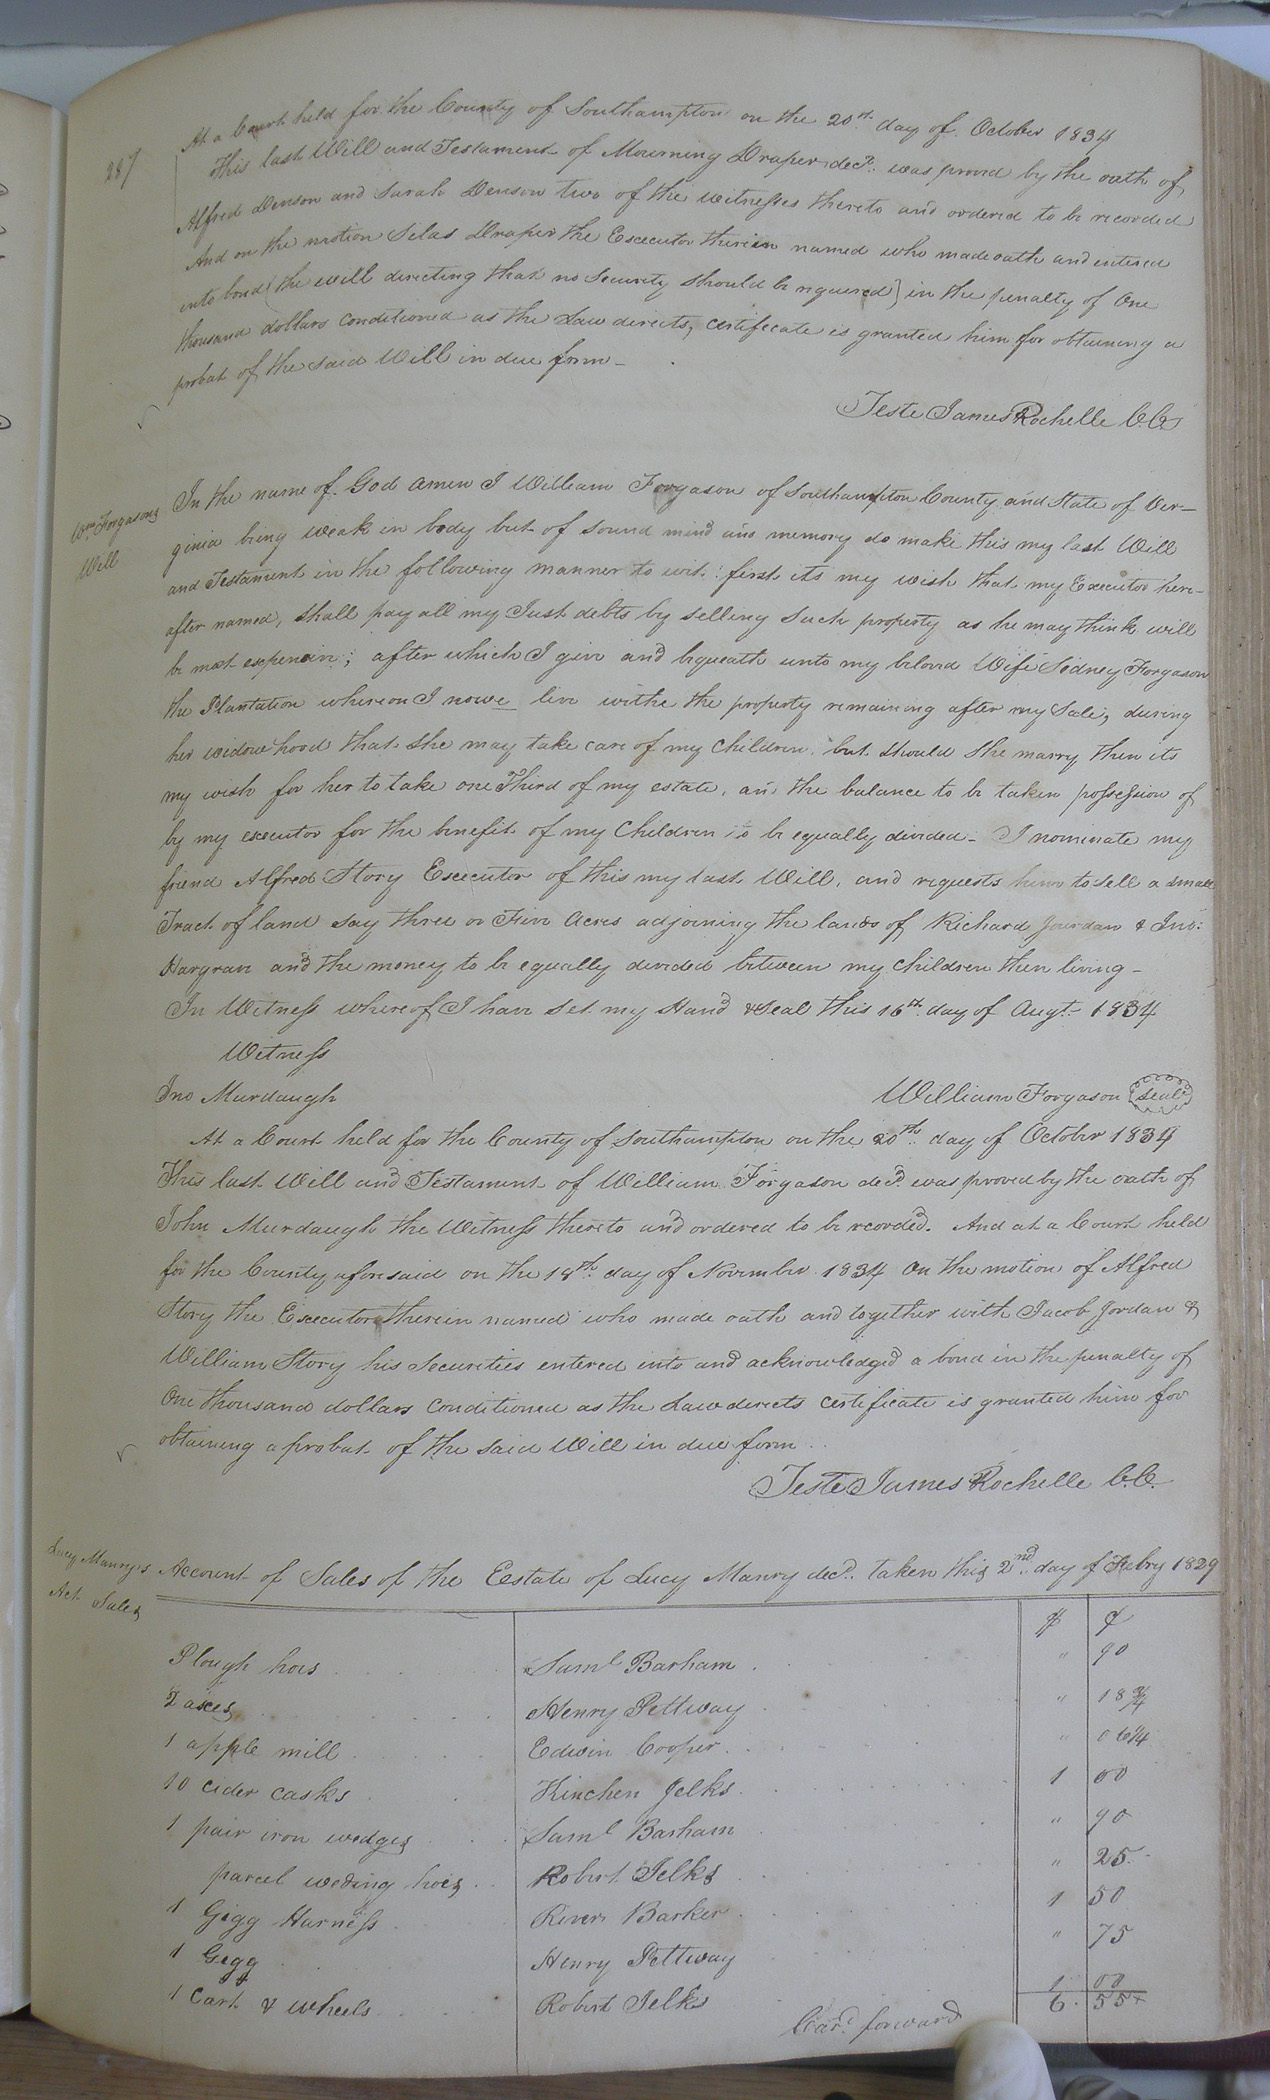 287
At a Court held for the County of Southampton on the 20th day of October 1834
This last Will and Testament of Mourning Draper decd. was proved by the oath of
Alfred Denson and Sarah Denson two of the witnesses thereto and ordered to be recorded
And on the motion Silas Draper the Executor therein named who made oath and entered
into bond (the will directing that no security should be required) in the penalty of One
thousand dollars conditioned as the Law directs, certificate is granted him for obtaining a
probat of the said Will in due form
Teste James Rochelle C.C.
Wm Forgasons
Will
In the name of God Amen I William Forgason of Southampton County and State of Ver-
ginia being weak in body but of sound mind and memory do make this my last Will
and Testament in the following manner to wit: first its my wish that my Executor here-
after named, shall pay all my Just debts by selling such property as he may think will
be most expensive; after which I give and bequeath unto my beloved Wife Sidney Forgason
the Plantation whereon I nowe live withe the property remaining after my Sale, during
her widowhood that she may take care of my Children, but should she marry then its
my wish for her to take one Third of my estate, and the balance to be taken possession of
by my executor for the benefit of my Children to be equally divided - I nominate my
friend Alfred Story Executor of this my last Will, and requests him to sell a small
Tract of land say three or Five Acres adjoining the lands of Richard Jourdan & Jno:
Hargrave and the money to be equally divided between my children then living -
In Witness whereof I have set my Hand & Seal this 16th day of Augt. 1834
Witness
Jno Murdaugh
William Forgason seal
At a Court held for the County of Southampton on the 20th day of October 1834
This last Will and Testament of William Forgason decd. was proved by the oath of
John Murdaugh the Witness thereto and ordered to be recorded. And at a Court held
for the County aforesaid on the 18th day of November 1834 On the motion of Alfred
Story the Executor therein named who made oath and together with Jacob Jordan &
William Story his Securities entered into and acknowledged a bond in the penalty of
One thousand dollars conditioned as the Law directs certificate is granted him for
obtaining a probat of the said Will in due form
Teste James Rochelle C.C.
Lucy Manry's
Act Sales
Account of Sales of the Estate of Lucy Manry decd. taken this 2nd day of Febry 1829
$ ¢
Plough hoes Saml Barham " 90
2 axes Henry Pettway " 18 3/4
1 apple mill Edwin Cooper " 06 1/4
10 Cider Casks Kinchen Jelks 1 00
1 pair iron wedges Saml Barham " 90
parcel weding hoes Robert Jelks " 25
1 Gigg Harness Rivers Barker 1 50
1 Gigg Henry Pettway " 75
1 Cart & wheels Robert Jelks 1 00
Card. forward 6. 55